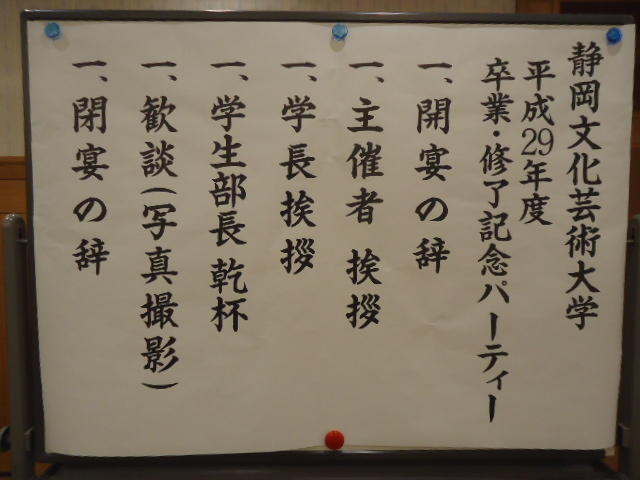 静岡文化芸術大学
平成29年度
卒業・修了記念パーティー
一、開宴の辞
一、主催者 挨拶
一、学長挨拶
一、学生部長 乾杯
一、歓談(写真撮影)
一、閉宴の辞